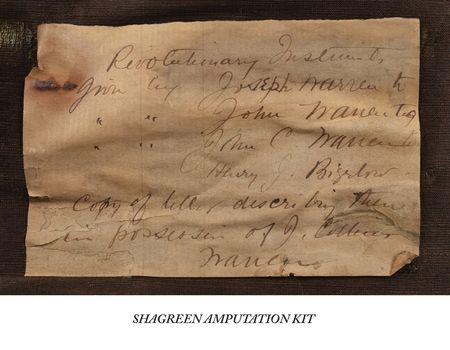 Revolutionary Instruments
Given by Joseph Warren to
" " John Warren to
" " John C. Warren to
Henry J. Bigelow
Copy of letter describing them
in possession of J. Collins
Warren
SHAGREEN AMPUTATION KIT